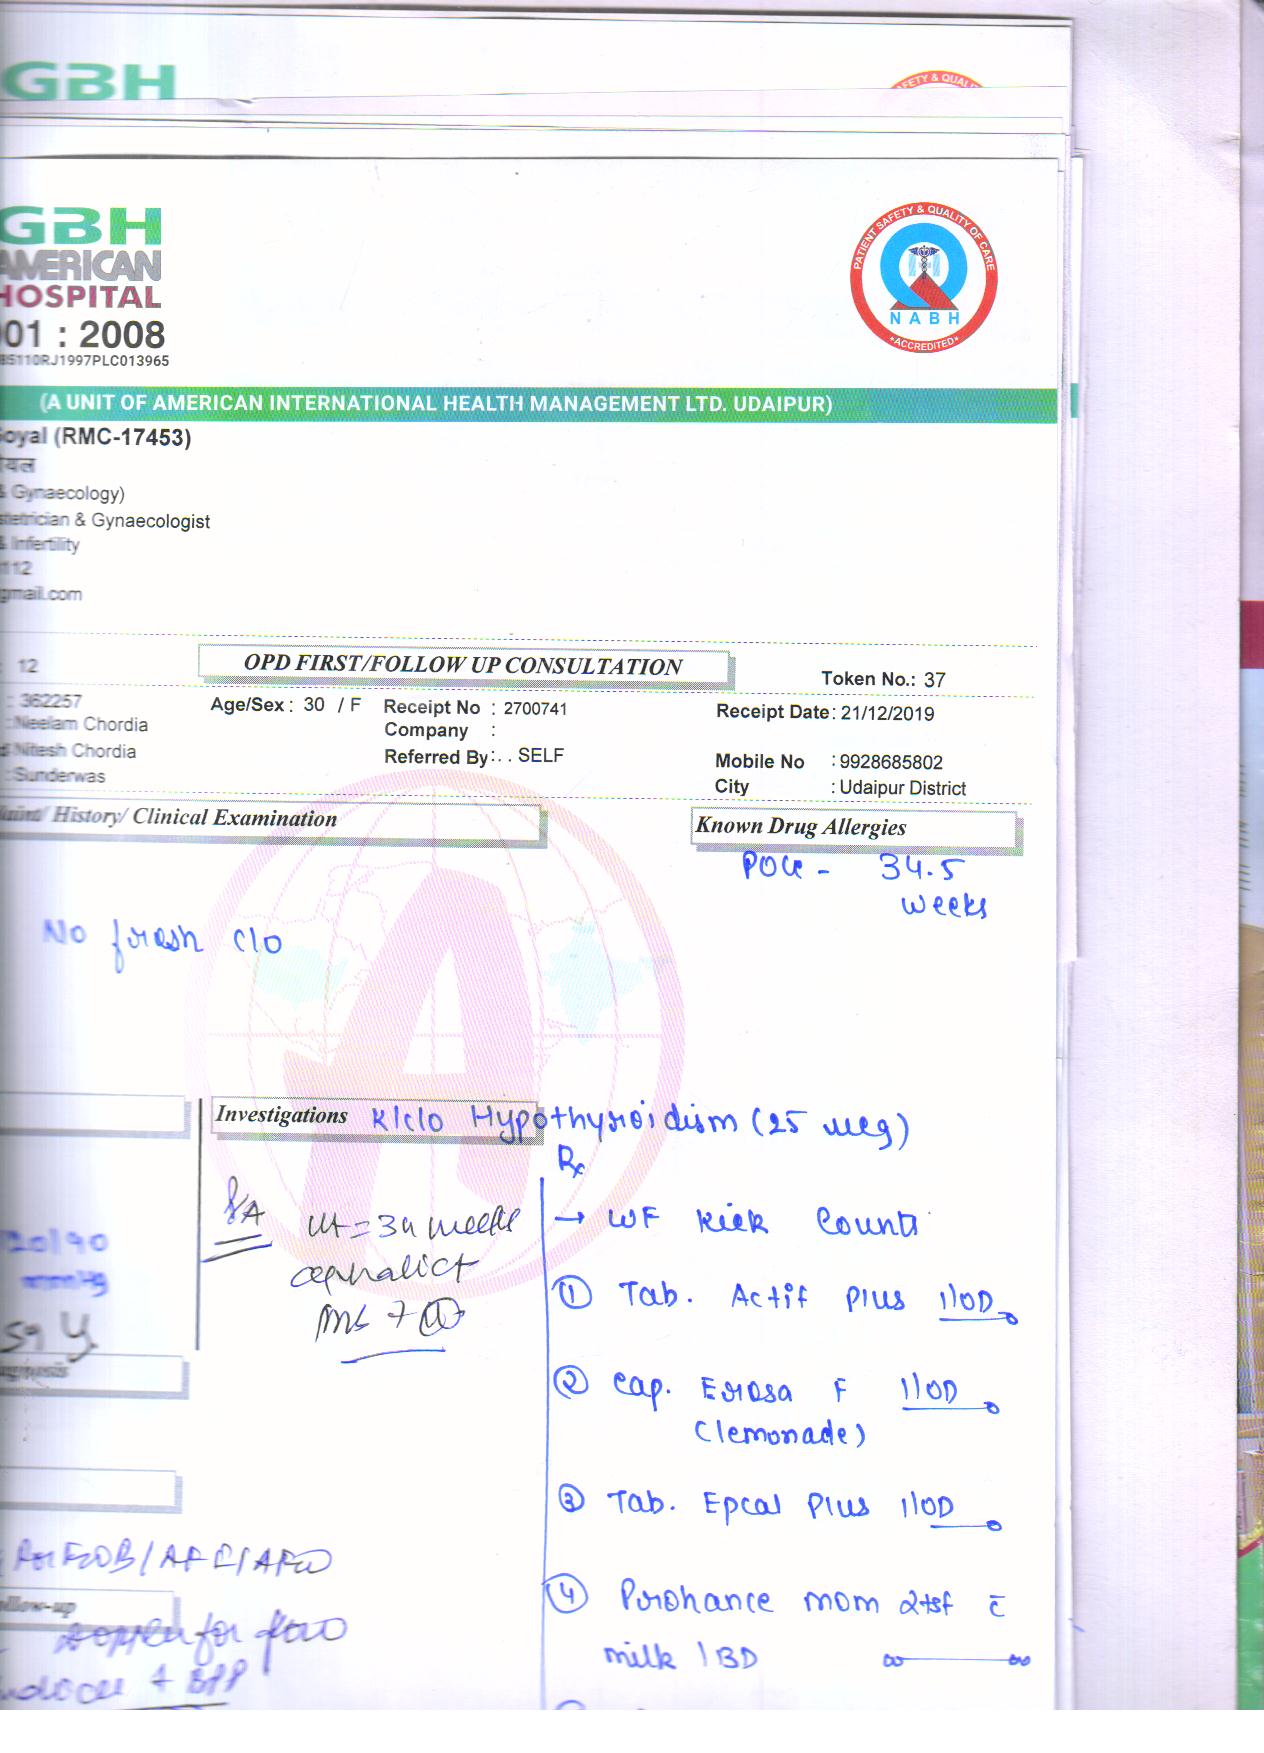 GBH
SAFETY & QUALI
GBH
AMERICAN
HOSPITAL
001 : 2008
85110RJ1997PLC013965
PATIENT SAFETY & QUALITY OF CARE
NABH
*ACCREDITED*
(A UNIT OF AMERICAN INTERNATIONAL HEALTH MANAGEMENT LTD. UDAIPUR)
Goyal (RMC-17453)
गोयल
& Gynaecology)
Obstetrician & Gynaecologist
& Infertility
112
gmail.com
: 12 OPD FIRST/FOLLOW UP CONSULTATION Token No.: 37
: 362257 Age/Sex : 30 / F Receipt No : 2700741 Receipt Date: 21/12/2019
: Neelam Chordia Company :
Nitesh Chordia Referred By : . . SELF Mobile No : 9928685802
: Sunderwas City : Udaipur District
History/ Clinical Examination Known Drug Allergies
POG - 34.5
weeks
No fresh c/o
Investigations K/c/o Hypothyroidism (25 mcg)
Rx
P/A ut = 34 weeks
cephalic
→ WF Kick Count
20/90
mmHg
59
① Tab. Actif Plus 1 OD
② Cap. Erosa F 1 OD
(lemonade)
③ Tab. Epcal Plus 1 OD
④ Prohance mom 2tsf c̄
milk 1 BD
Follow-up
Doppler for
+ BPP